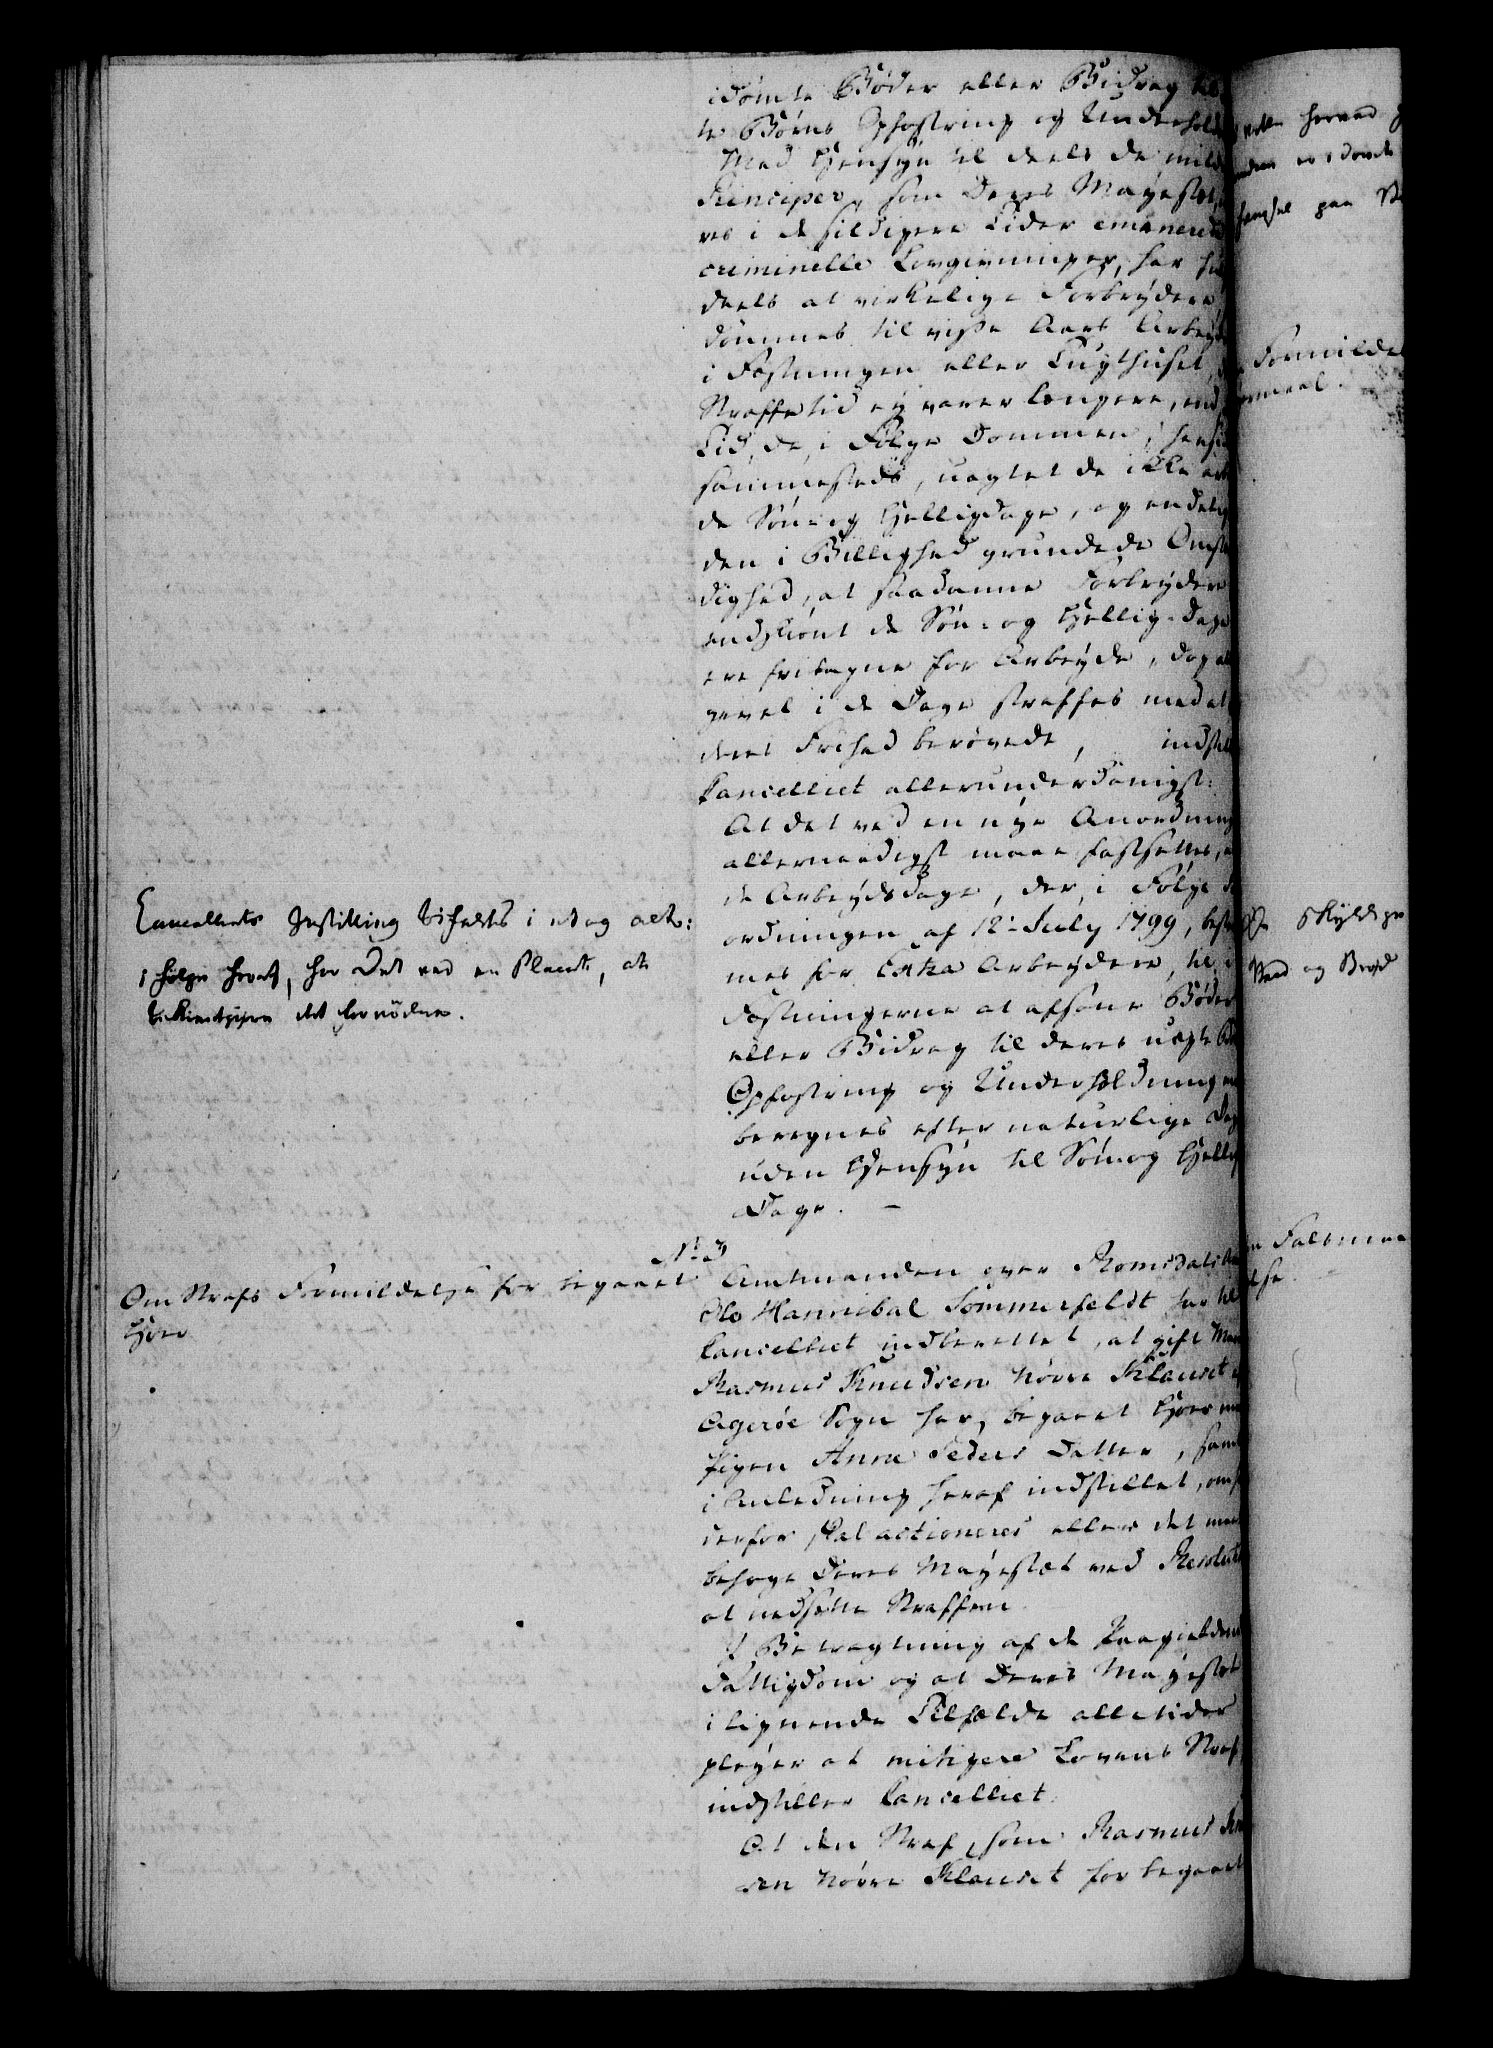 idömte Bøder eller Bidrag til
te Børns Opfostring og Underhold
Med Hensyn til deels de milde
Principer, som Deres Mayestæt
res i de sildigere Tider emanerede
criminelle Lovgivninger, har
deels at virkelige Forbrydere
dømmes til visse Aars Arbeyde
i Fæstningen eller Tugthuset,
Straffetid ey varer længere, end
Tid, de, i Følge Dommen, hensidde
sammesteds, uagtet de ikke arb
de Søn- og Helligdage, og endelig
den i Billighed grundede Omstæn
dighed, at saadanne Forbrydere
endskiönt de Søn- og Hellig-Dage
ere fritagne for Arbeyde, dog al
gevel i de Dage straffes med at
deres Frihed berøvede, indstill
Cancelliet allerunderdanigst:
At det ved en nye Anordning
allernaadigst maae fastsættes, at
de Arbeydsdage, der, i Følge
ordningen af 12te July 1799, bestem
mes for Extra Arbeydere, til i
Fæstningerne at afsone Bøder
eller Bidrag til deres uægte Bø
Opfostring og Underholdning
beregnes efter naturlige Dage
uden Hensyn til Søn- og Hellig
Dage. –
Cancelliets Instilling bifaldes i et og alt:
i følge hvoraf, har Det ved en Placat, at
bekiendtgiøre det fornödne.
No 3
Om Strafs Formildelse for begaaet
Hoer
Amtmanden over Romsdals
Ole Hannibal Sommerfeldt har til
Cancelliet indberettet, at gift Mand
Rasmus Knudsen Nörre Klauset
Agerøe Sogn har begaaet Hoer med
Pigen Anne Peders Datter, samt
i Anledning heraf indstillet, om
derfor skal actioneres eller det maatte
behage Deres Mayestæt ved Resolut
at nedsætte Straffen.
I Betragtning af de Paagieldende
Fattigdom og at Deres Mayestæt
i lignende Tilfælde alletider
pleyer at mitigere Lovens Straf
indstiller Cancelliet:
At den Straf, som Rasmus Knud
sen Nörre Klauset for begaaet
Formildel
Skyldige
Vand og Brød
Falsmaa